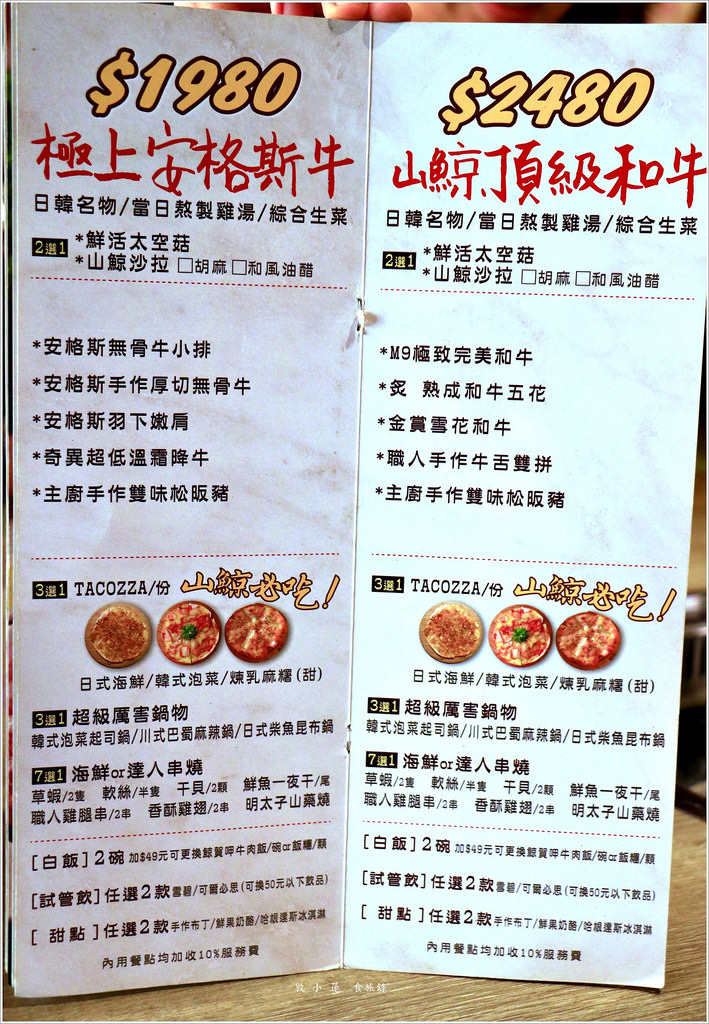 $1980
極上安格斯牛
日韓名物/當日熬製雞湯/綜合生菜
2選1 *鮮活太空菇
*山鯨沙拉 □胡麻 □和風油醋
*安格斯無骨牛小排
*安格斯手作厚切無骨牛
*安格斯羽下嫩肩
*奇異超低溫霜降牛
*主廚手作雙味松阪豬
3選1 TACOZZA/份 山鯨必吃！
日式海鮮/韓式泡菜/煉乳麻糬(甜)
3選1 超級厲害鍋物
韓式泡菜起司鍋/川式巴蜀麻辣鍋/日式柴魚昆布鍋
7選1 海鮮or達人串燒
草蝦/2隻 軟絲/半隻 干貝/2顆 鮮魚一夜干/尾
職人雞腿串/2串 香酥雞翅/2串 明太子山藥燒
[白飯]2碗 加$49元可更換鯨賀呷牛肉飯/碗or飯糰/顆
[試管飲]任選2款 雪碧/可爾必思(可換50元以下飲品)
[ 甜點 ]任選2款 手作布丁/鮮果奶酪/哈根達斯冰淇淋
內用餐點均加收10%服務費
$2480
山鯨頂級和牛
日韓名物/當日熬製雞湯/綜合生菜
2選1 *鮮活太空菇
*山鯨沙拉 □胡麻 □和風油醋
*M9極致完美和牛
*炙 熟成和牛五花
*金賞雪花和牛
*職人手作牛舌雙拼
*主廚手作雙味松阪豬
3選1 TACOZZA/份 山鯨必吃！
日式海鮮/韓式泡菜/煉乳麻糬(甜)
3選1 超級厲害鍋物
韓式泡菜起司鍋/川式巴蜀麻辣鍋/日式柴魚昆布鍋
7選1 海鮮or達人串燒
草蝦/2隻 軟絲/半隻 干貝/2顆 鮮魚一夜干/尾
職人雞腿串/2串 香酥雞翅/2串 明太子山藥燒
[白飯]2碗 加$49元可更換鯨賀呷牛肉飯/碗or飯糰/顆
[試管飲]任選2款 雪碧/可爾必思(可換50元以下飲品)
[ 甜點 ]任選2款 手作布丁/鮮果奶酪/哈根達斯冰淇淋
內用餐點均加收10%服務費